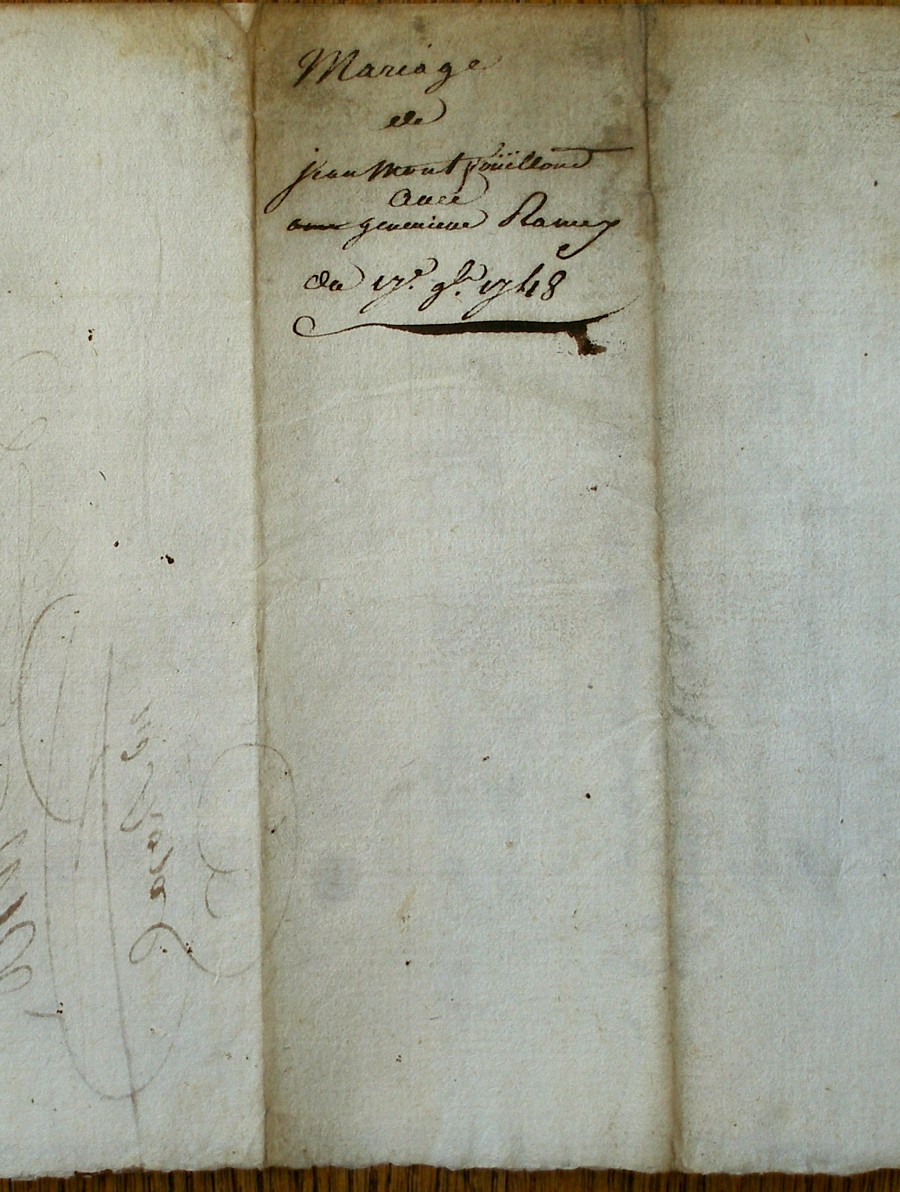 Mariage
de
jean Montpoüilloud
avec
genevieve Ramey
du 17.e 9.bre 1748